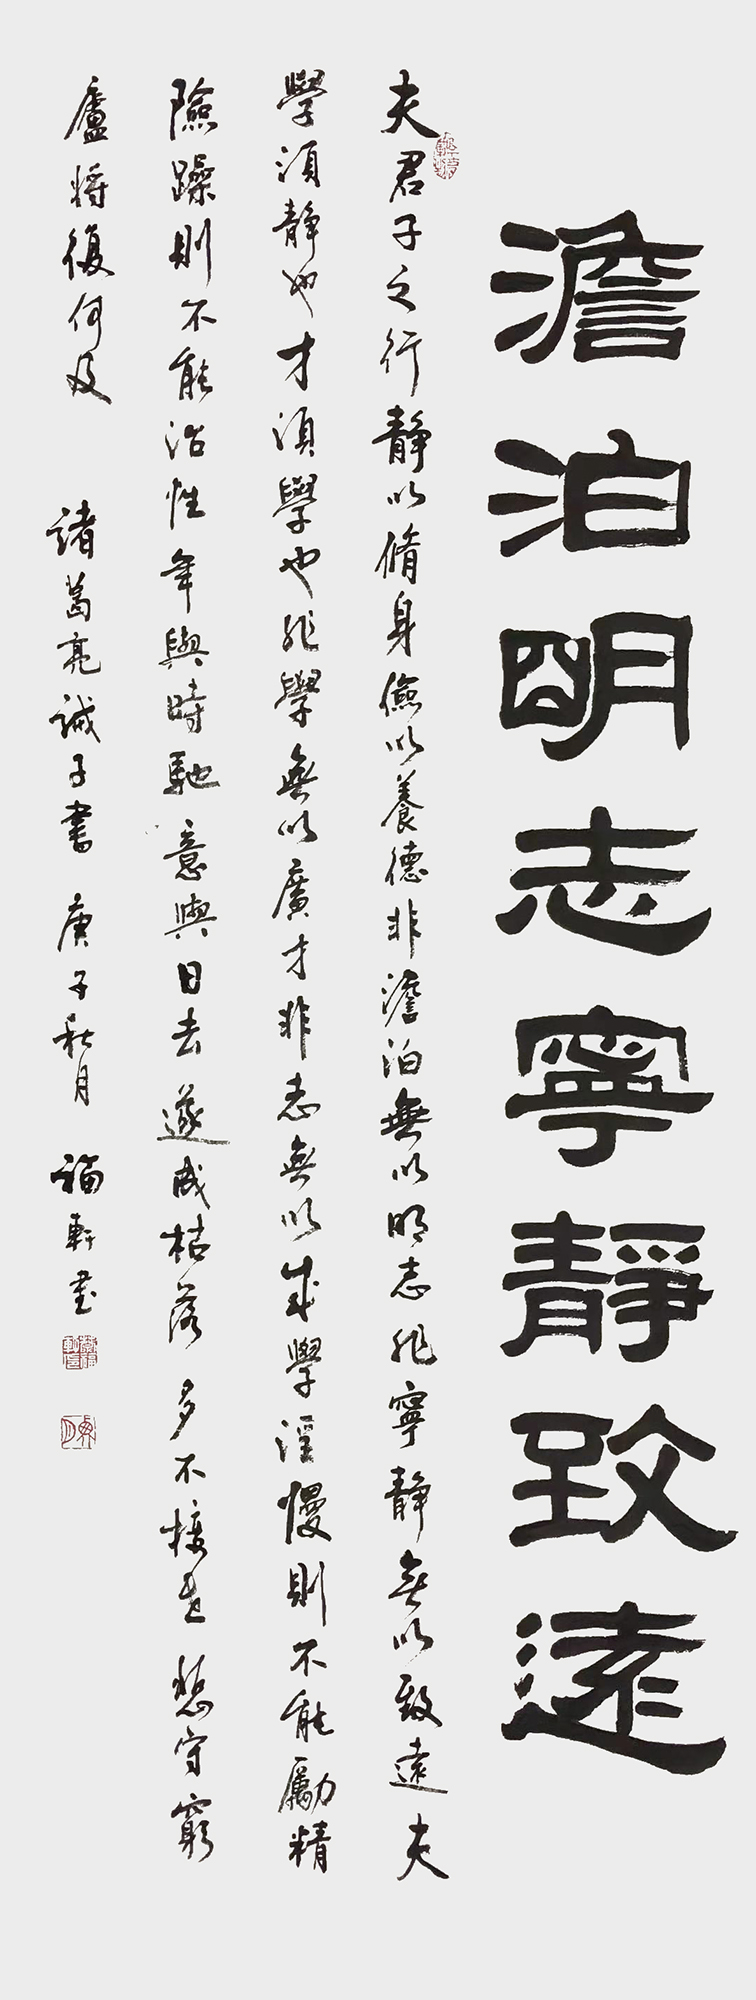 澹泊明志寧靜致遠
夫君子之行靜以脩身儉以養德非澹泊無以明志非寧靜無以致遠夫
學須靜也才須學也非學無以廣才非志無以成學淫慢則不能勵精
險躁則不能治性年與時馳意與日去遂成枯落多不接世悲守窮
廬將復何及
諸葛亮誡子書 庚子秋月 福軒書